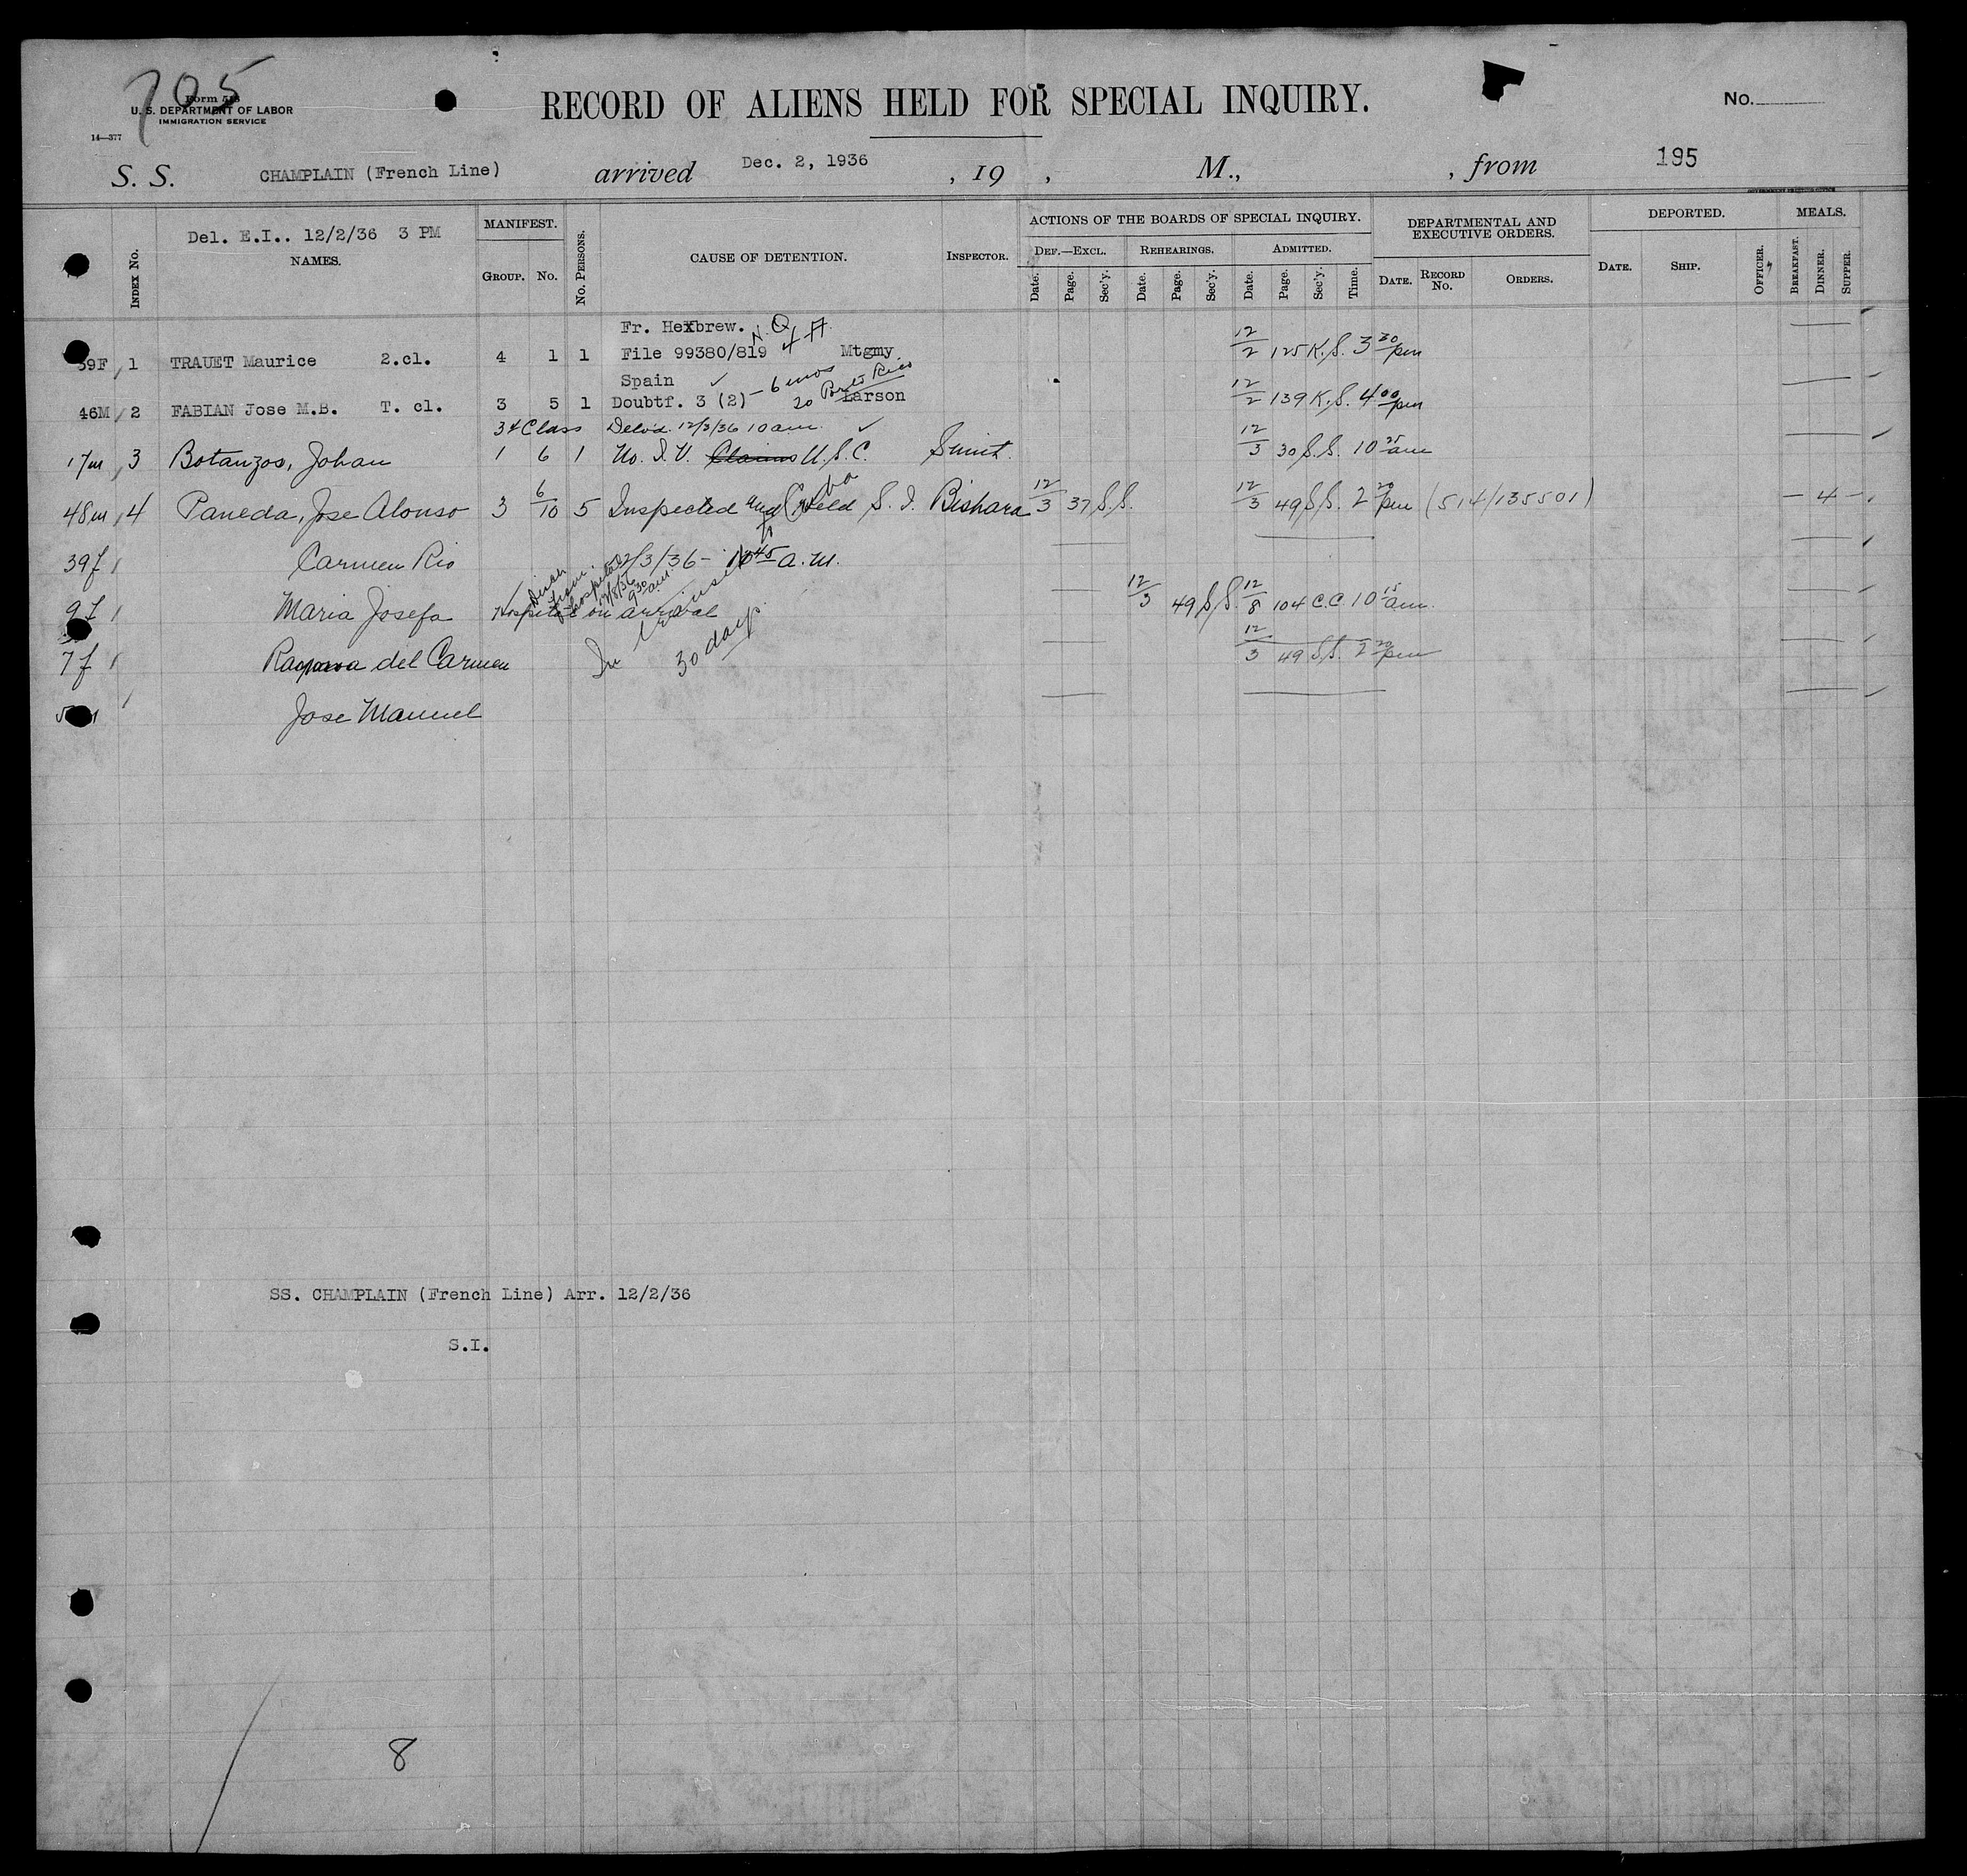 705
Form 518
U. S. DEPARTMENT OF LABOR
IMMIGRATION SERVICE
14—377
RECORD OF ALIENS HELD FOR SPECIAL INQUIRY.
No.
S. S. CHAMPLAIN (French Line) arrived Dec. 2, 1936, 19 , M., , from 195
GOVERNMENT PRINTING OFFICE
INDEX No.
Del. E.I.. 12/2/36 3 PM
NAMES.
MANIFEST.
GROUP. No.
No. PERSONS.
CAUSE OF DETENTION.
INSPECTOR.
ACTIONS OF THE BOARDS OF SPECIAL INQUIRY.
DEF.—EXCL. REHEARINGS. ADMITTED.
Date. Page. Sec'y. Date. Page. Sec'y. Date. Page. Sec'y. Time.
DEPARTMENTAL AND EXECUTIVE ORDERS.
DATE. RECORD No. ORDERS.
DEPORTED.
DATE. SHIP. OFFICER.
MEALS.
BREAKFAST. DINNER. SUPPER.
Fr. Hexbrew. N.Q.
39F 1 TRAUET Maurice 2.cl. 4 1 1 File 99380/819 Mtgmy 12/2 125 K.S. 3 30 pm
Spain ✓ – 6 mos
46M 2 FABIAN Jose M.B. T. cl. 3 5 1 Doubtf. 3 (2) 20 Porto Rico Larson 12/2 139 K.S. 4 00 pm
3d Class Delvd. 12/3/36 10 am ✓
17m 3 Botanzos, Johan 1 6 1 No. I.V. Claims U.S.C. Smit. 12/3 30 S.S. 10 25 am
48m 4 Paneda, Jose Alonso 3 6/10 5 Inspected and Held S.I. Cuba Bishara 12/3 37 S.S. 12/3 49 S.S. 2 20 pm (514/135501) – 4 –
39f Carmen Rio 12/3/36 – 10 45 a.m.
9f Maria Josefa Hospital on arrival 12/3 49 S.S. 12/8 104 C.C. 10 15 am.
from hospital 12/8/36 9 30 am.
7f Ramona del Carmen In transit to 30 days 12/3 49 S.S. 2 20 pm
Jose Manuel
SS. CHAMPLAIN (French Line) Arr. 12/2/36
S.I.
8